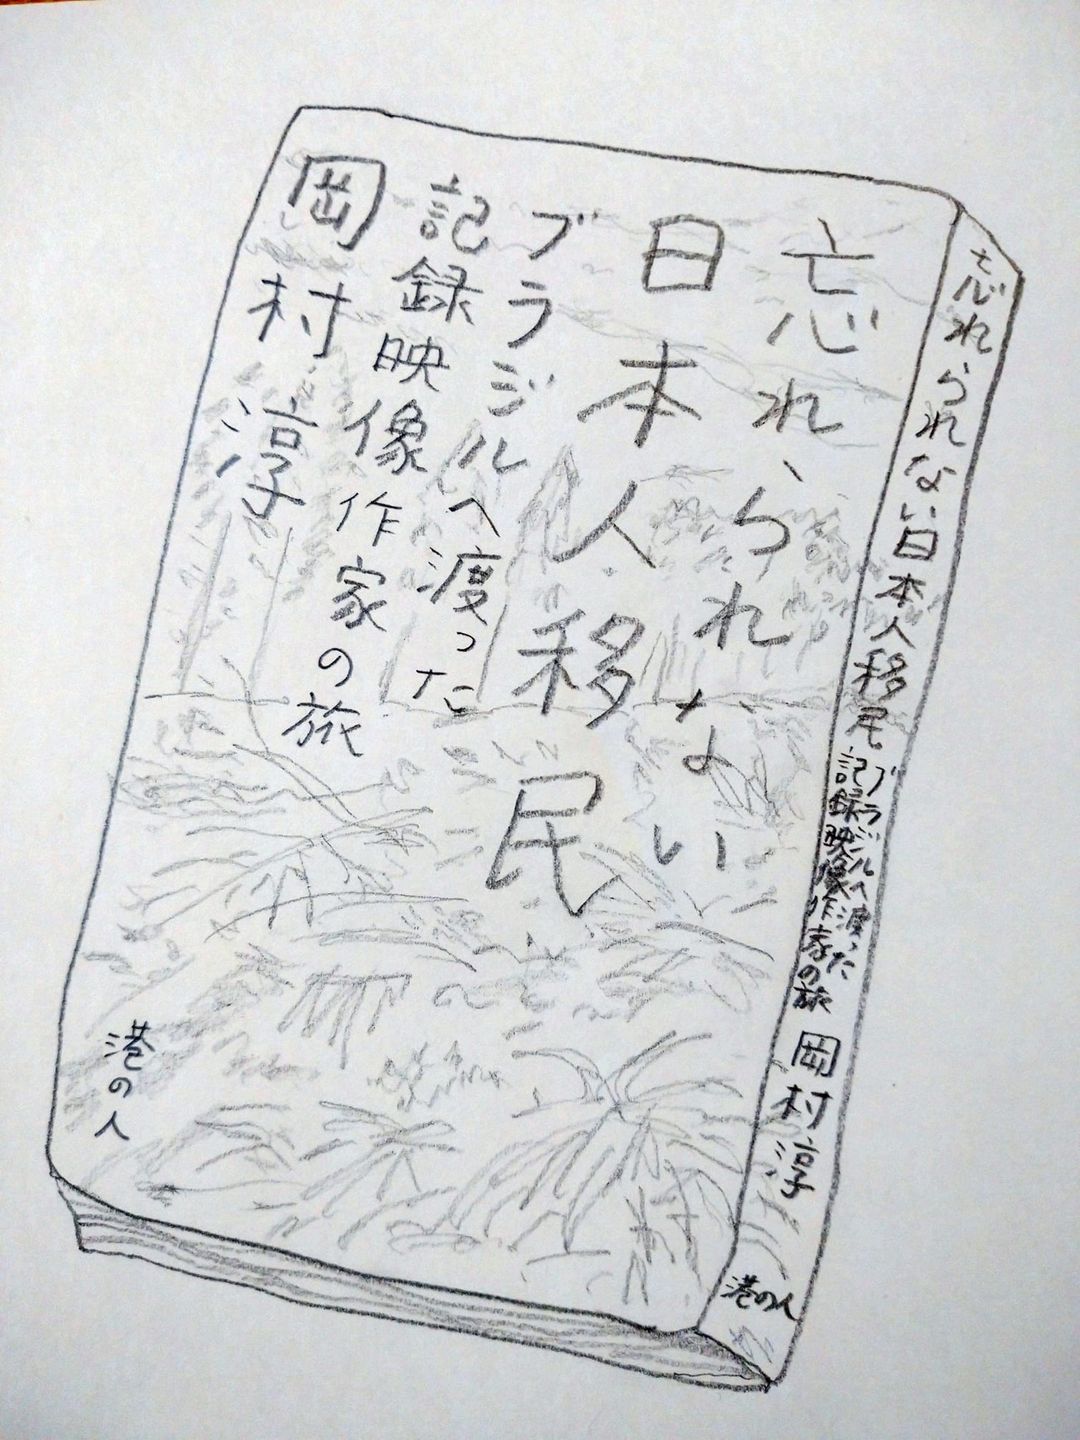 忘れられない
日本人移民
ブラジルへ渡った
記録映像作家の旅
岡村淳
港の人
忘れられない日本人移民
ブラジルへ渡った
記録映像作家の旅
岡村淳
港の人